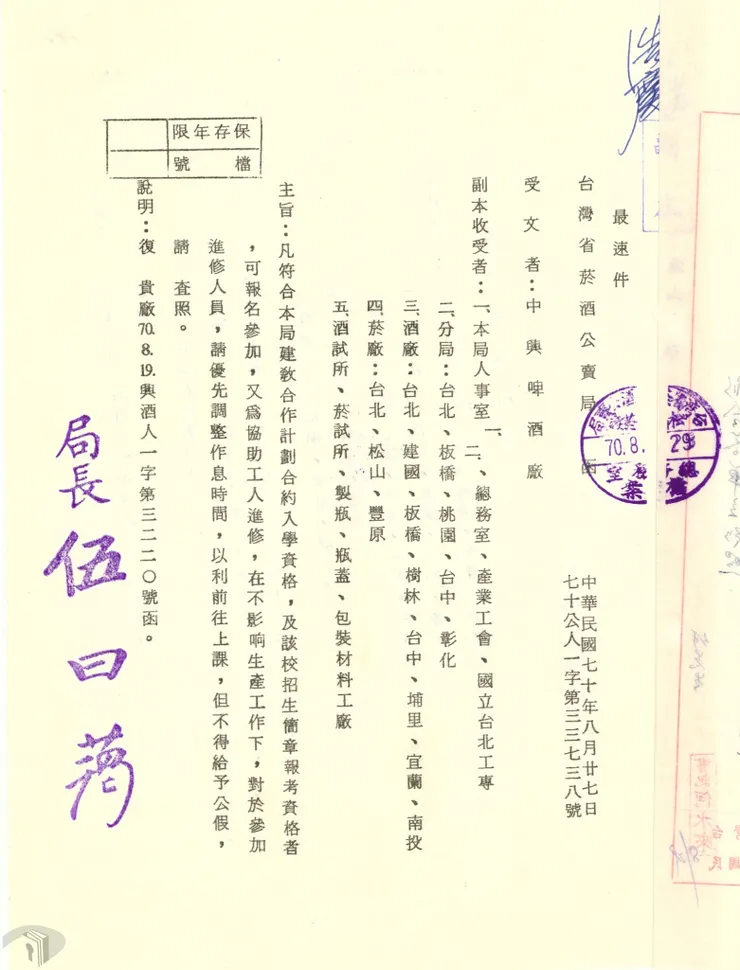 保存年限
檔號
最速件
台灣省菸酒公賣局　函
中華民國七十年八月廿七日
七十公人一字第三三七三八號
70.8.29
受文者：中興啤酒廠
副本收受者：一、本局人事室一、二、、總務室、產業工會、國立台北工專
二、分局：台北、板橋、桃園、台中、彰化
三、酒廠：台北、建國、板橋、樹林、台中、埔里、宜蘭、南投
四、菸廠：台北、松山、豐原
五、酒試所、菸試所、製瓶、瓶蓋、包裝材料工廠
主旨：凡符合本局建教合作計劃合約入學資格，及該校招生簡章報考資格者
，可報名參加，又為協助工人進修，在不影响生產工作下，對於參加
進修人員，請優先調整作息時間，以利前往上課，但不得給予公假，
請　查照。
說明：復　貴廠70.8.19.興酒人一字第三二二〇號函。
局長伍曰藹